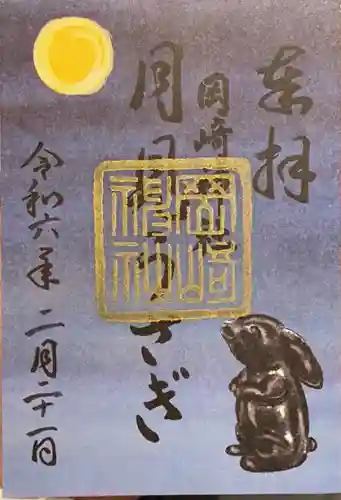 奉拝
岡崎神社
月見うさぎ
令和六年二月二十一日
岡崎神社